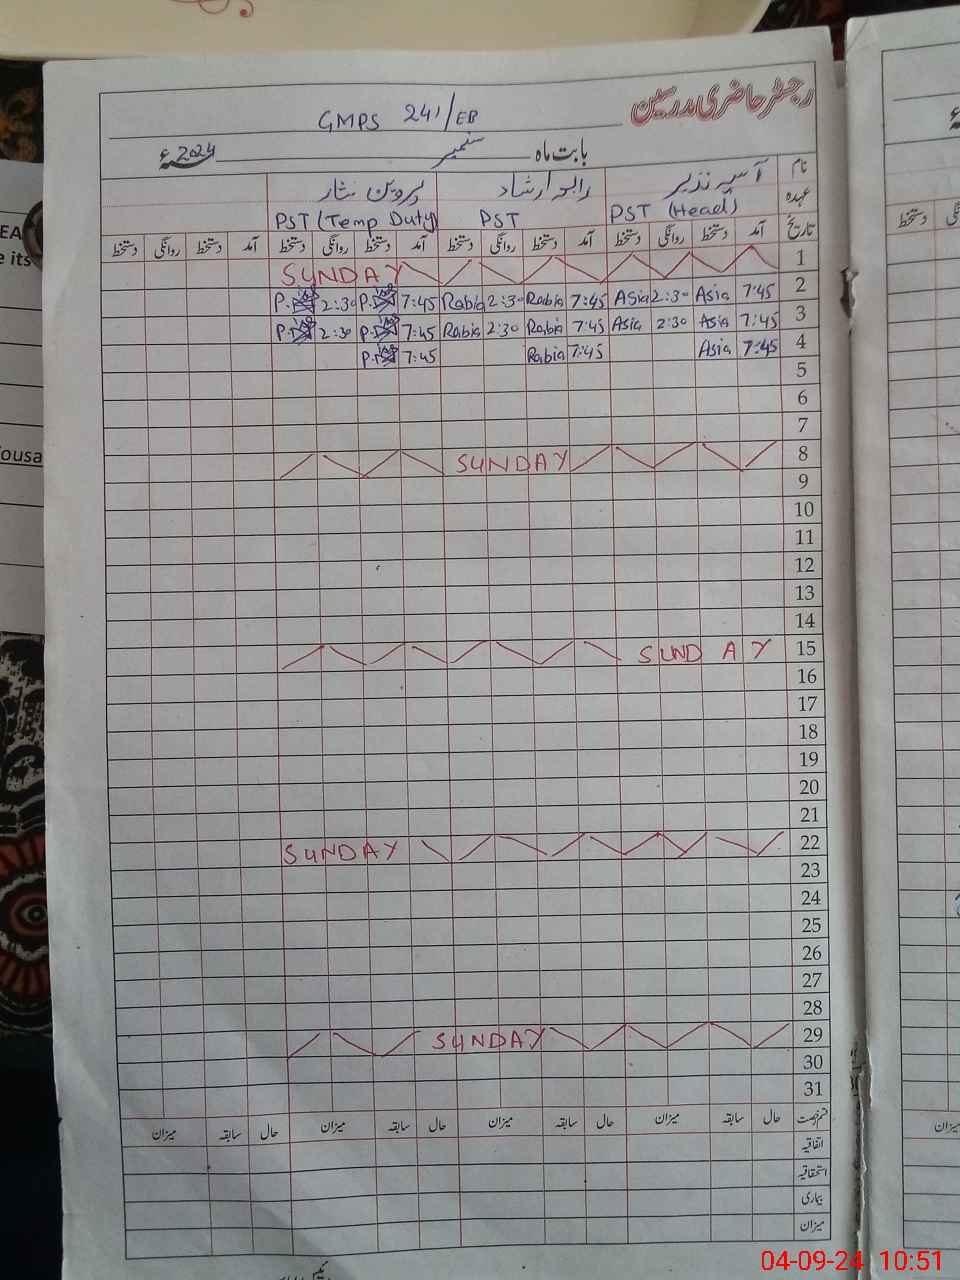 رجسٹر حاضری مدرسین
GMPS 241/EB
بابت ماہ ستمبر 2024ء
نام آسیہ نذیر رابعہ ارشاد پروین نثار
عہدہ PST (Head) PST PST (Temp Duty)
تاریخ آمد دستخط روانگی دستخط آمد دستخط روانگی دستخط آمد دستخط روانگی دستخط آمد دستخط روانگی دستخط
SUNDAY 1
2:30 7:45 Rabia 2:30 Rabia 7:45 Asia 2:30 Asia 7:45 2
2:30 7:45 Rabia 2:30 Rabia 7:45 Asia 2:30 Asia 7:45 3
7:45 Rabia 7:45 Asia 7:45 4
5
6
7
SUNDAY 8
9
10
11
12
13
14
SUNDAY 15
16
17
18
19
20
21
SUNDAY 22
23
24
25
26
27
28
SUNDAY 29
30
31
قسم رخصت حال سابقہ میزان حال سابقہ میزان حال سابقہ میزان
اتفاقیہ
استحقاقیہ
بیماری
میزان
04-09-24 10:51